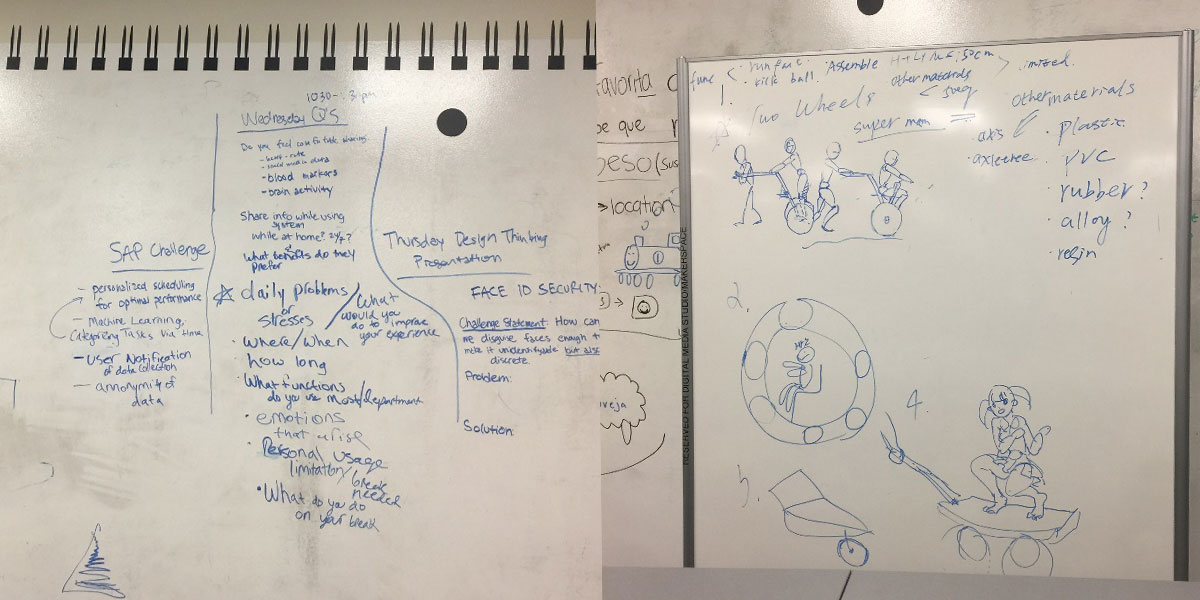 1030-.3pm
Wednesday QS
Do you feel comfortable sharing
- heart-rate
- social media data
- blood markers
- brain activity
Share info while using
system
while at home? 24/7?
What benefits do they
prefer
daily problems
or
stresses
/ What
would you
do to improve
your experience
• Where/When
how long
• What functions
do you use most/department
• emotions
that arise
• Personal usage
limitation/break
needed
• What do you do
on your break
SAP Challenge
- personalized scheduling
for optimal performance
- Machine Learning,
Categorizing Tasks via time
- User Notification
of data collection
- annonymity of
data
Thursday Design Thinking
Presentation
FACE ID SECURITY
Challenge Statement: How can
we disguise faces enough
make it unidentifyable but also
discrete.
Problem:
Solution:
favorita
que
peso(sus
→location
veja
RESERVED FOR DIGITAL MEDIA STUDIO/MAKERSPACE
func < · run fast.
· kick ball.
Assemble
50cm
other materials
< 5kg
1.
Two Wheels
super man
other materials
axis
axletree
· plastic
· PVC
· rubber?
· alloy?
· resin
2.
3.
4.